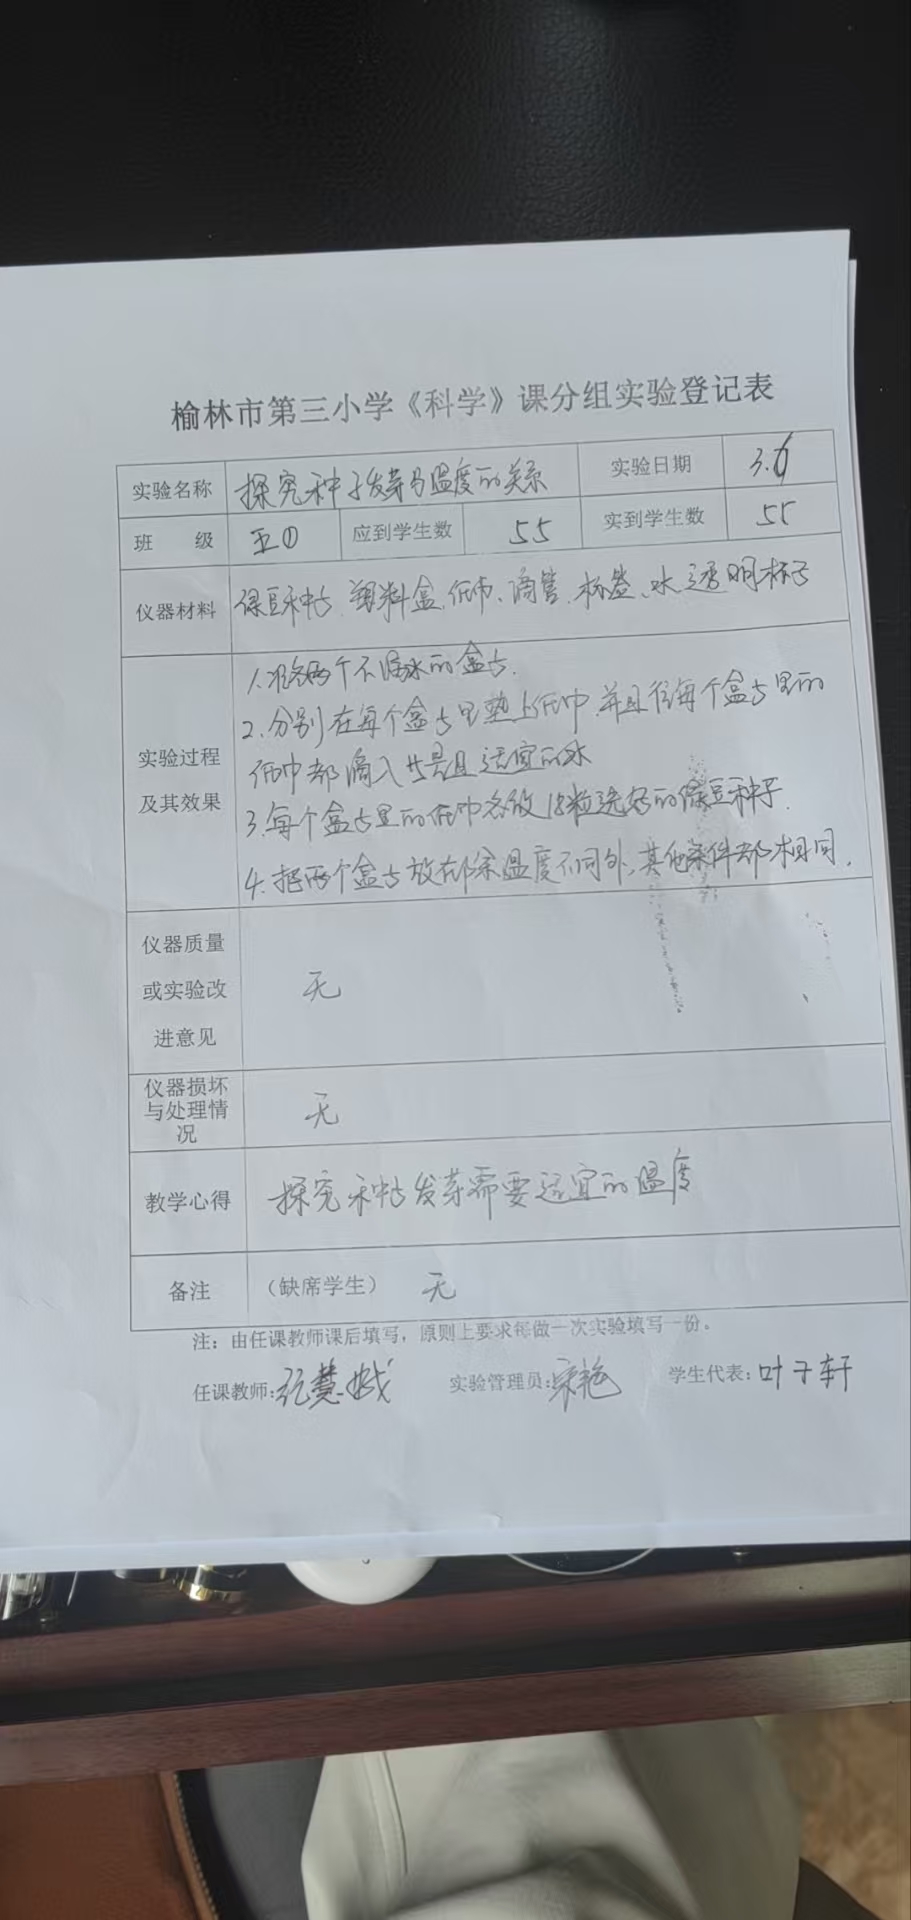 榆林市第三小学《科学》课分组实验登记表
实验名称 探究种子发芽与温度的关系 实验日期 3.6
班 级 五① 应到学生数 55 实到学生数 55
仪器材料 绿豆种子、塑料盒、纸巾、滴管、标签、水、透明杯子
实验过程及其效果
1.准备两个不漏水的盒子.
2.分别在每个盒子里垫上纸巾,并且往每个盒子里的
纸巾都滴入等量且适宜的水
3.每个盒子里的纸巾各放 粒选好的绿豆种子.
4.把两个盒子放在除温度不同外,其他条件都相同.
仪器质量
或实验改
进意见
无
仪器损坏
与处理情
况
无
教学心得 探究种子发芽需要适宜的温度
备注 (缺席学生) 无
注:由任课教师课后填写,原则上要求每做一次实验填写一份。
任课教师:张慧娥 实验管理员:宋艳 学生代表:叶子轩